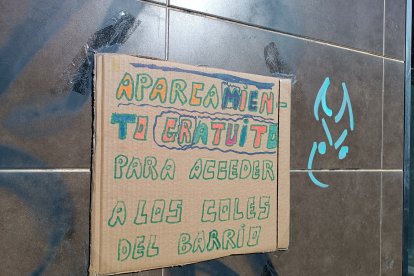 APARCAMIEN-
TO GRATUITO
PARA ACCEDER
A LOS COLES
DEL BARRIO